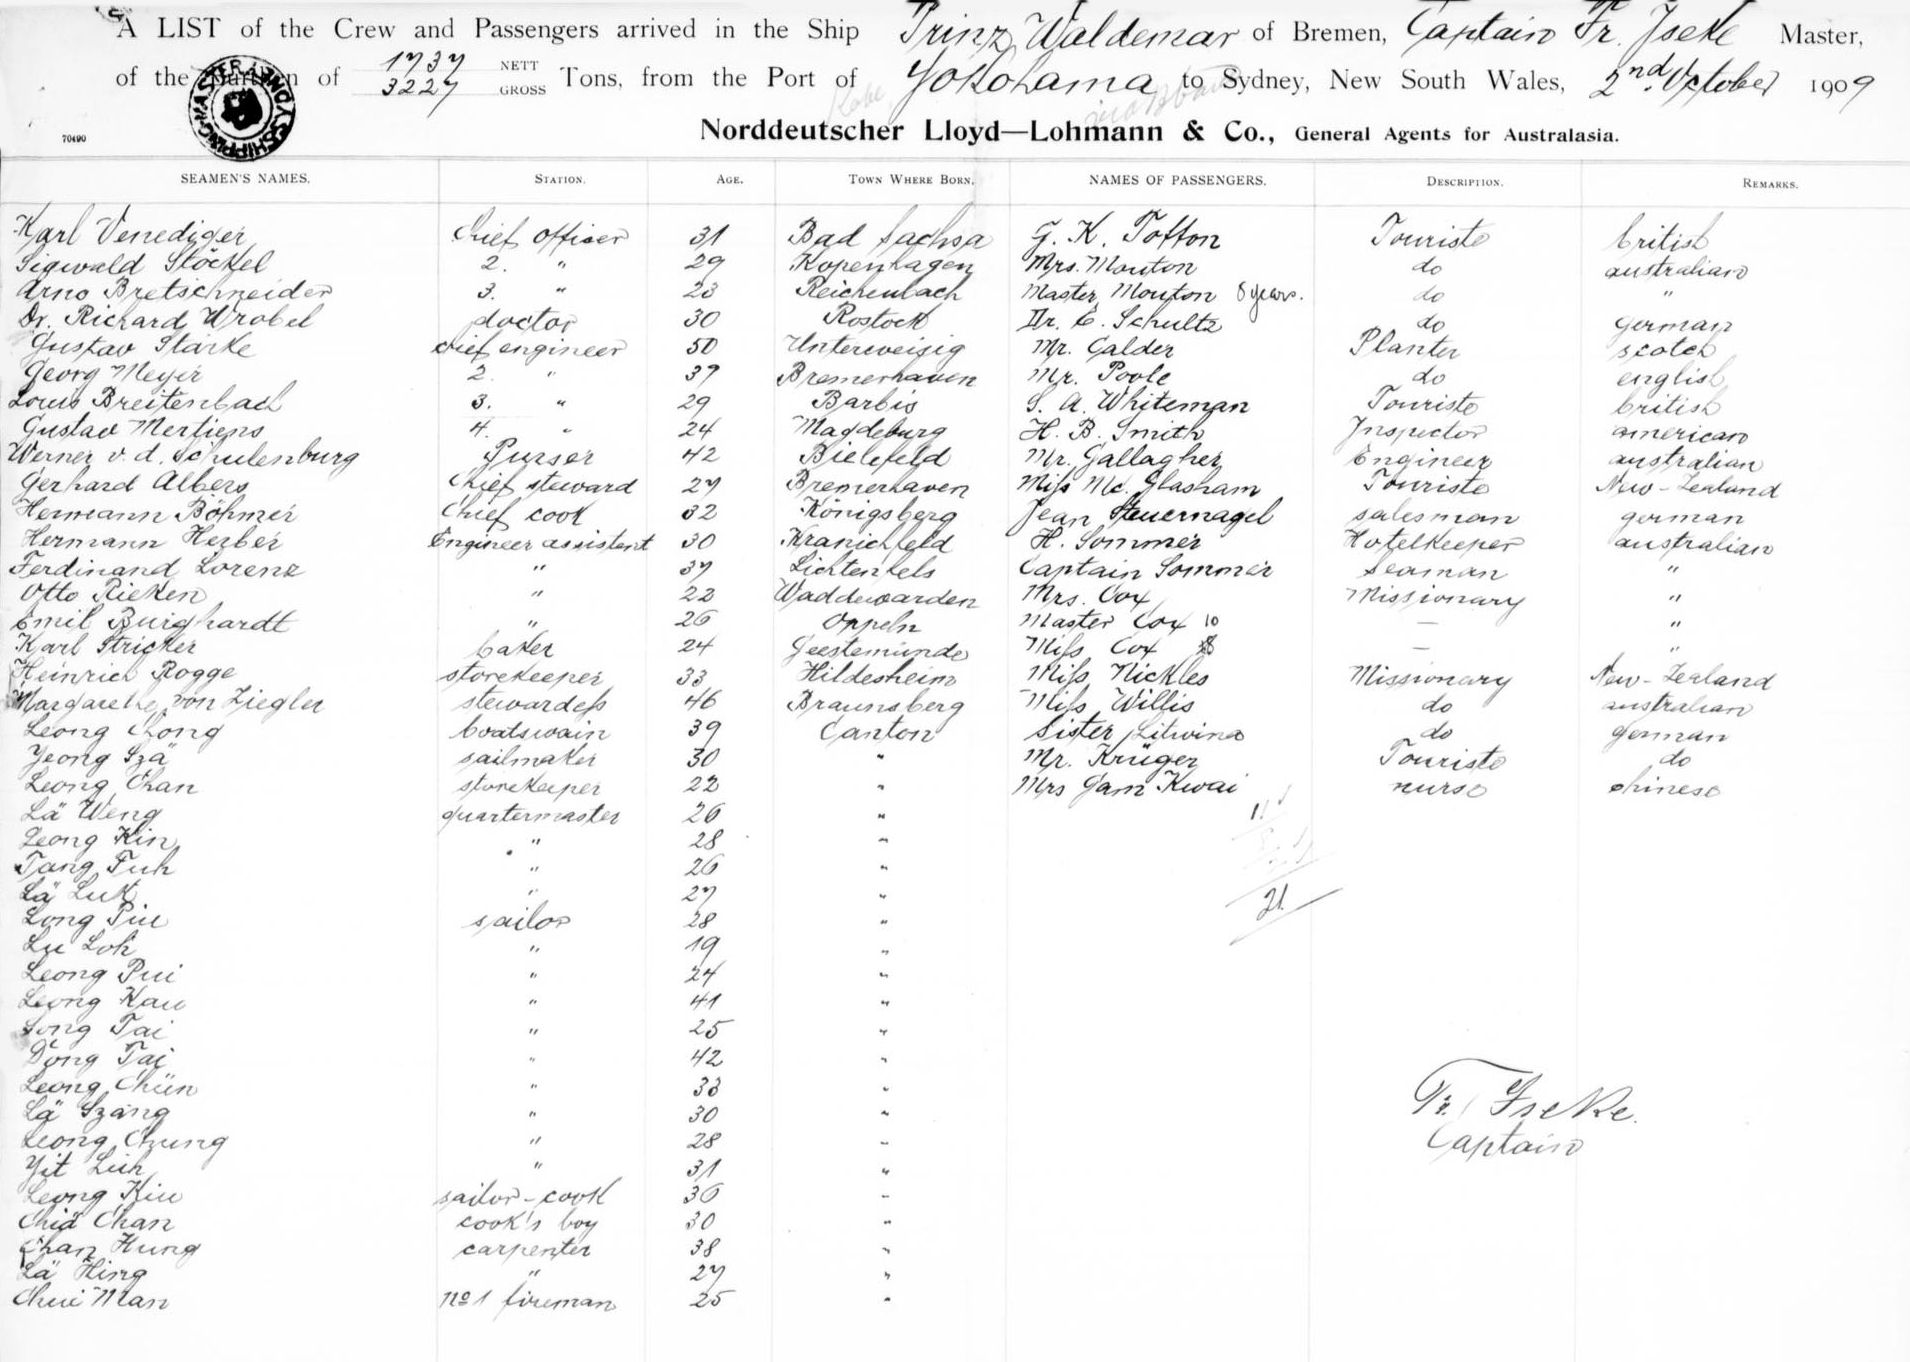 A LIST of the Crew and Passengers arrived in the Ship Prinz Waldemar of Bremen, Captain Fr. Iseke Master,
of the Burthen of 1737 NETT 3227 GROSS Tons, from the Port of Yokohama to Sydney, New South Wales, 2nd October 1909
SHIPPING MASTER SYDNEY
70490
Norddeutscher Lloyd—Lohmann & Co., General Agents for Australasia.
SEAMEN'S NAMES. STATION. AGE. TOWN WHERE BORN. NAMES OF PASSENGERS. DESCRIPTION. REMARKS.
Karl Venediger chief officer 31 Bad Sachsa G. K. Tofton Touriste british
Sigwald Stöckel 2. " 29 Kopenhagen Mrs. Mouton do australian
Arno Bretschneider 3. " 23 Reichenbach Master Mouton 8 years. do "
Dr. Richard Wrobel doctor 30 Rostock Dr. E. Schultz do german
Gustav Starke chief engineer 50 Unterweisig Mr. Calder Planter scotch
Georg Meyer 2. " 37 Bremerhaven Mr. Poole do english
Louis Breitenbach 3. " 29 Barbis S. A. Whiteman Touriste british
Gustav Mertiens 4. " 24 Magdeburg H. B. Smith Inspector american
Werner v. d. Schulenburg Purser 42 Bielefeld Mr. Gallagher Engineer australian
Gerhard Albers Chief steward 27 Bremerhaven Miss Mc. Glasham Touriste New-Zealand
Hermann Böhmer Chief cook 32 Königsberg Jean Steuernagel salesman german
Hermann Herber Engineer assistent 30 Kranichfeld H. Sommer Hotelkeeper australian
Ferdinand Lorenz " 37 Lichtenfels Captain Sommer seaman "
Otto Rieken " 22 Waddewarden Mrs. Cox Missionary "
Emil Burghardt " 26 Oppeln Master Cox 10 — "
Karl Stricker baker 24 Geestemünde Miss Cox 8 — "
Heinrich Rogge storekeeper 33 Hildesheim Miss Nickles Missionary New-Zealand
Margarethe von Ziegler stewardess 46 Braunsberg Miss Willis do australian
Leong Chong boatswain 39 Canton Sister Litwina do german
Yeong Szä sailmaker 30 " Mr. Krüger Touriste do
Leong Chan storekeeper 22 " Mrs Gam Kwai nurse chinese
Lä Weng quartermaster 26 "
Leong Kin " 28 "
Tang Fuh " 26 "
Lä Luk " 27 " 21
Long Piu sailor 28 "
Lu Loh " 19 "
Leong Pui " 24 "
Leong Kau " 41 "
Long Tai " 25 "
Dong Tai " 42 "
Leong Chün " 33 "
Lä Szäng " 30 "
Leong Chung " 28 "
Yit Lüh " 31 "
Leong Kiu sailor-cook 36 "
Chiä Chan cook's boy 30 "
Chan Hung carpenter 38 "
Lä Hing " 27 "
Chui Man No 1 fireman 25 "
Fr. Iseke.
Captain